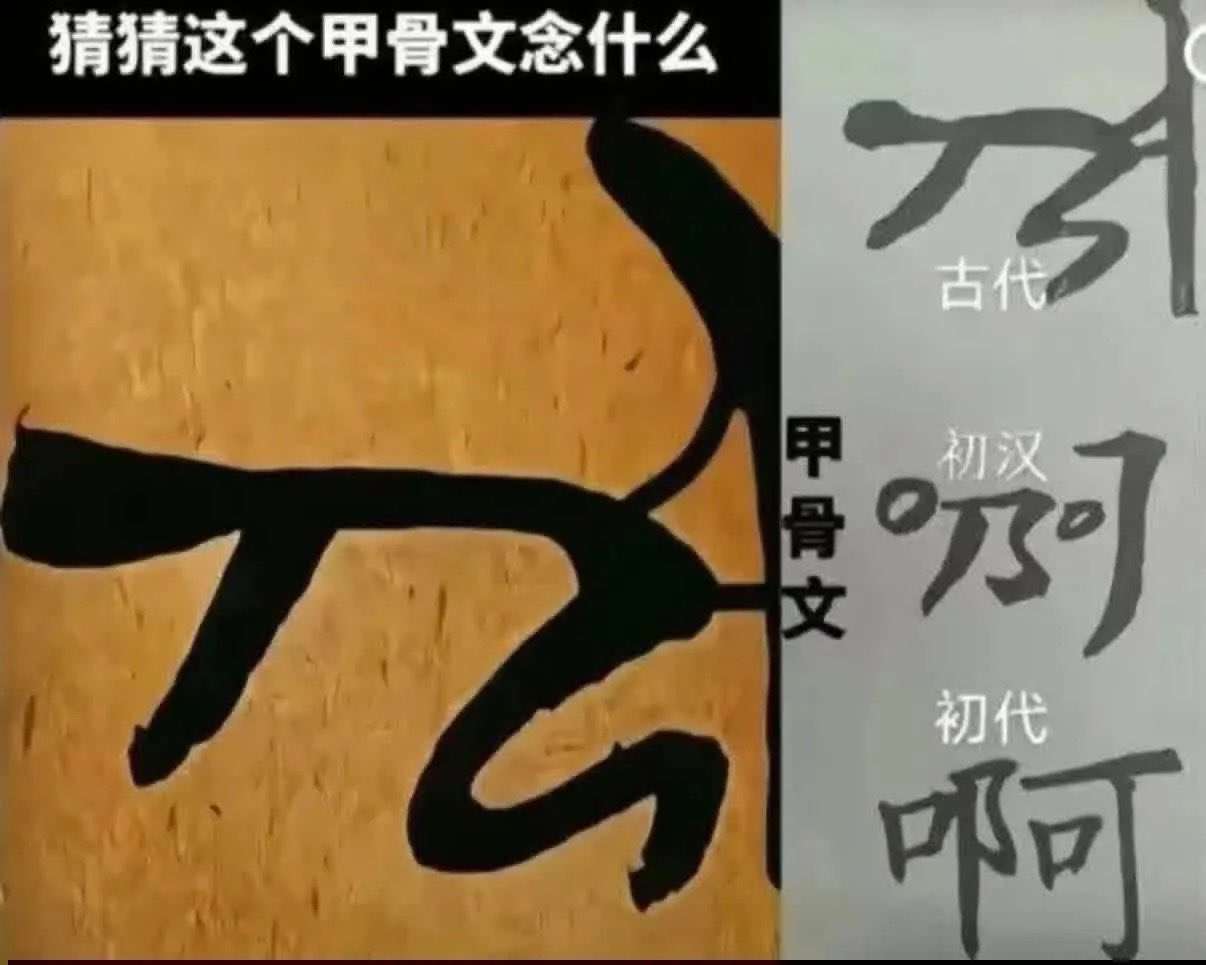 猜猜这个甲骨文念什么
甲骨文
古代
初汉
初代
啊